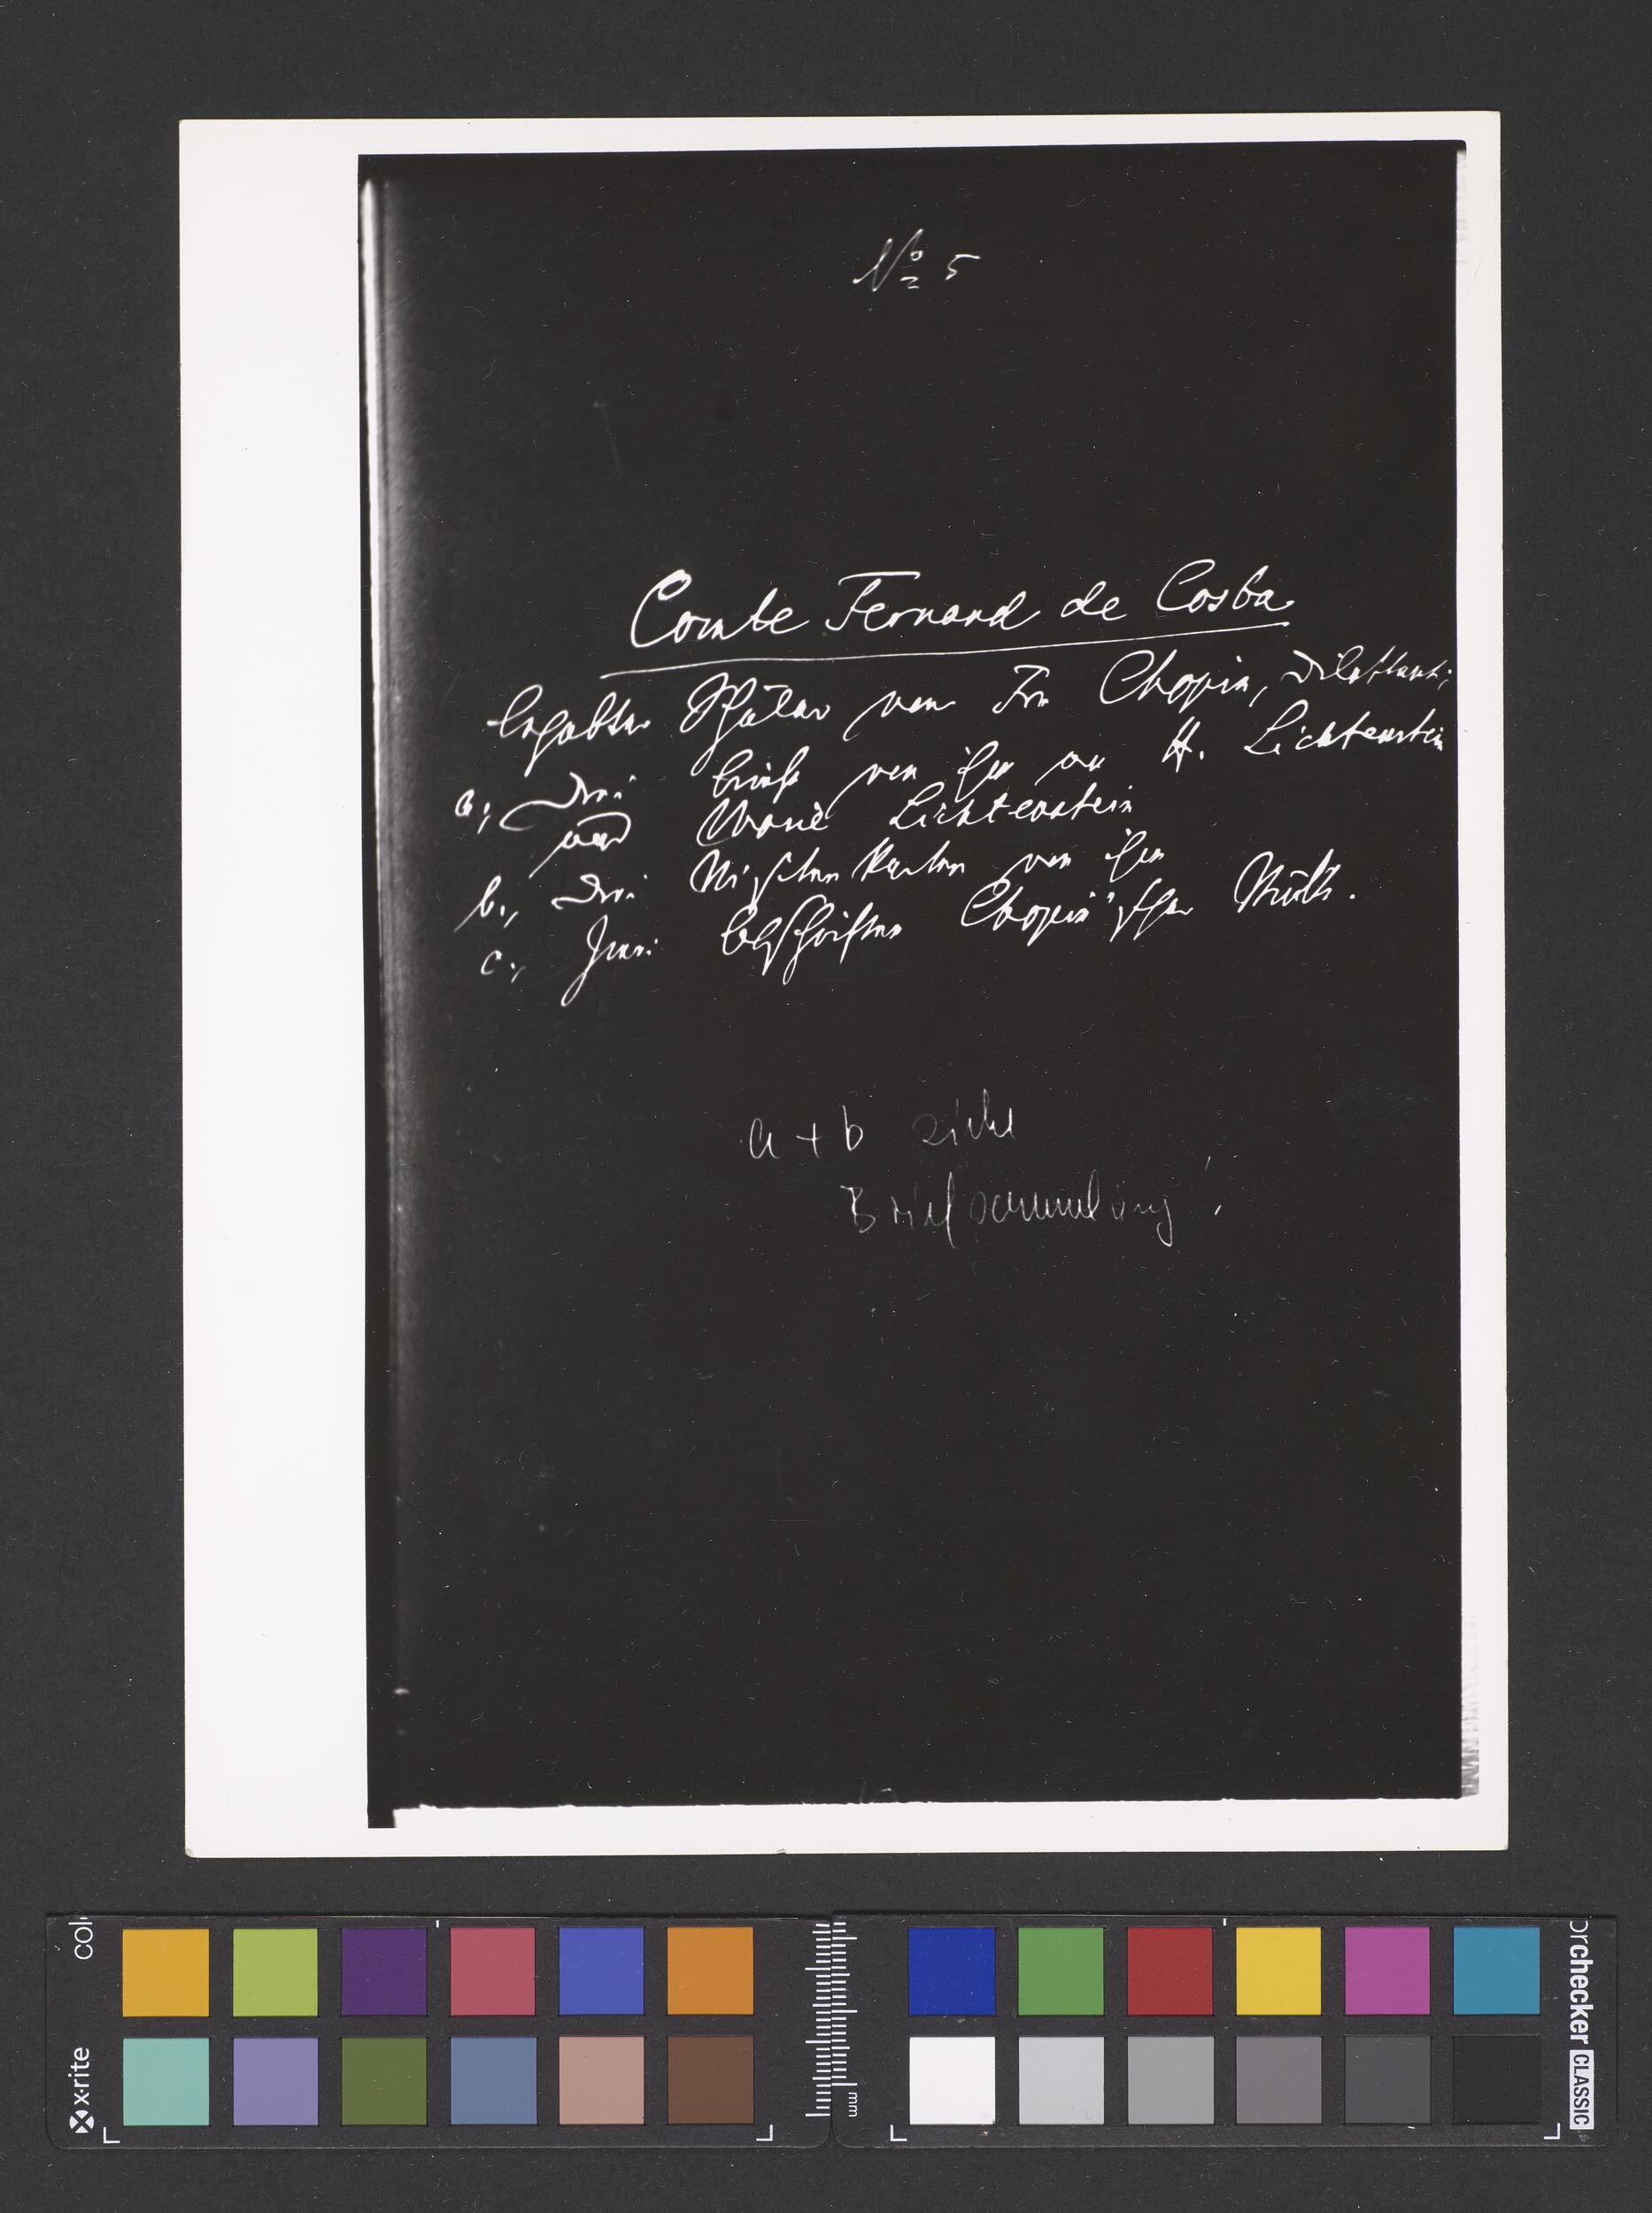 No 5
Comte Fernand de Costa
begabter Schüler von Fr. Chopin, Dilettant;
a, Drei Briefe von ihm an H. Lichtenstein
und Marie Lichtenstein
b., Drei Visitenkarten von ihm
c., Zwei Abschriften Chopin'scher Stücke.
a + b siehe
Briefsammlung!
x-rite
colorchecker CLASSIC
mm